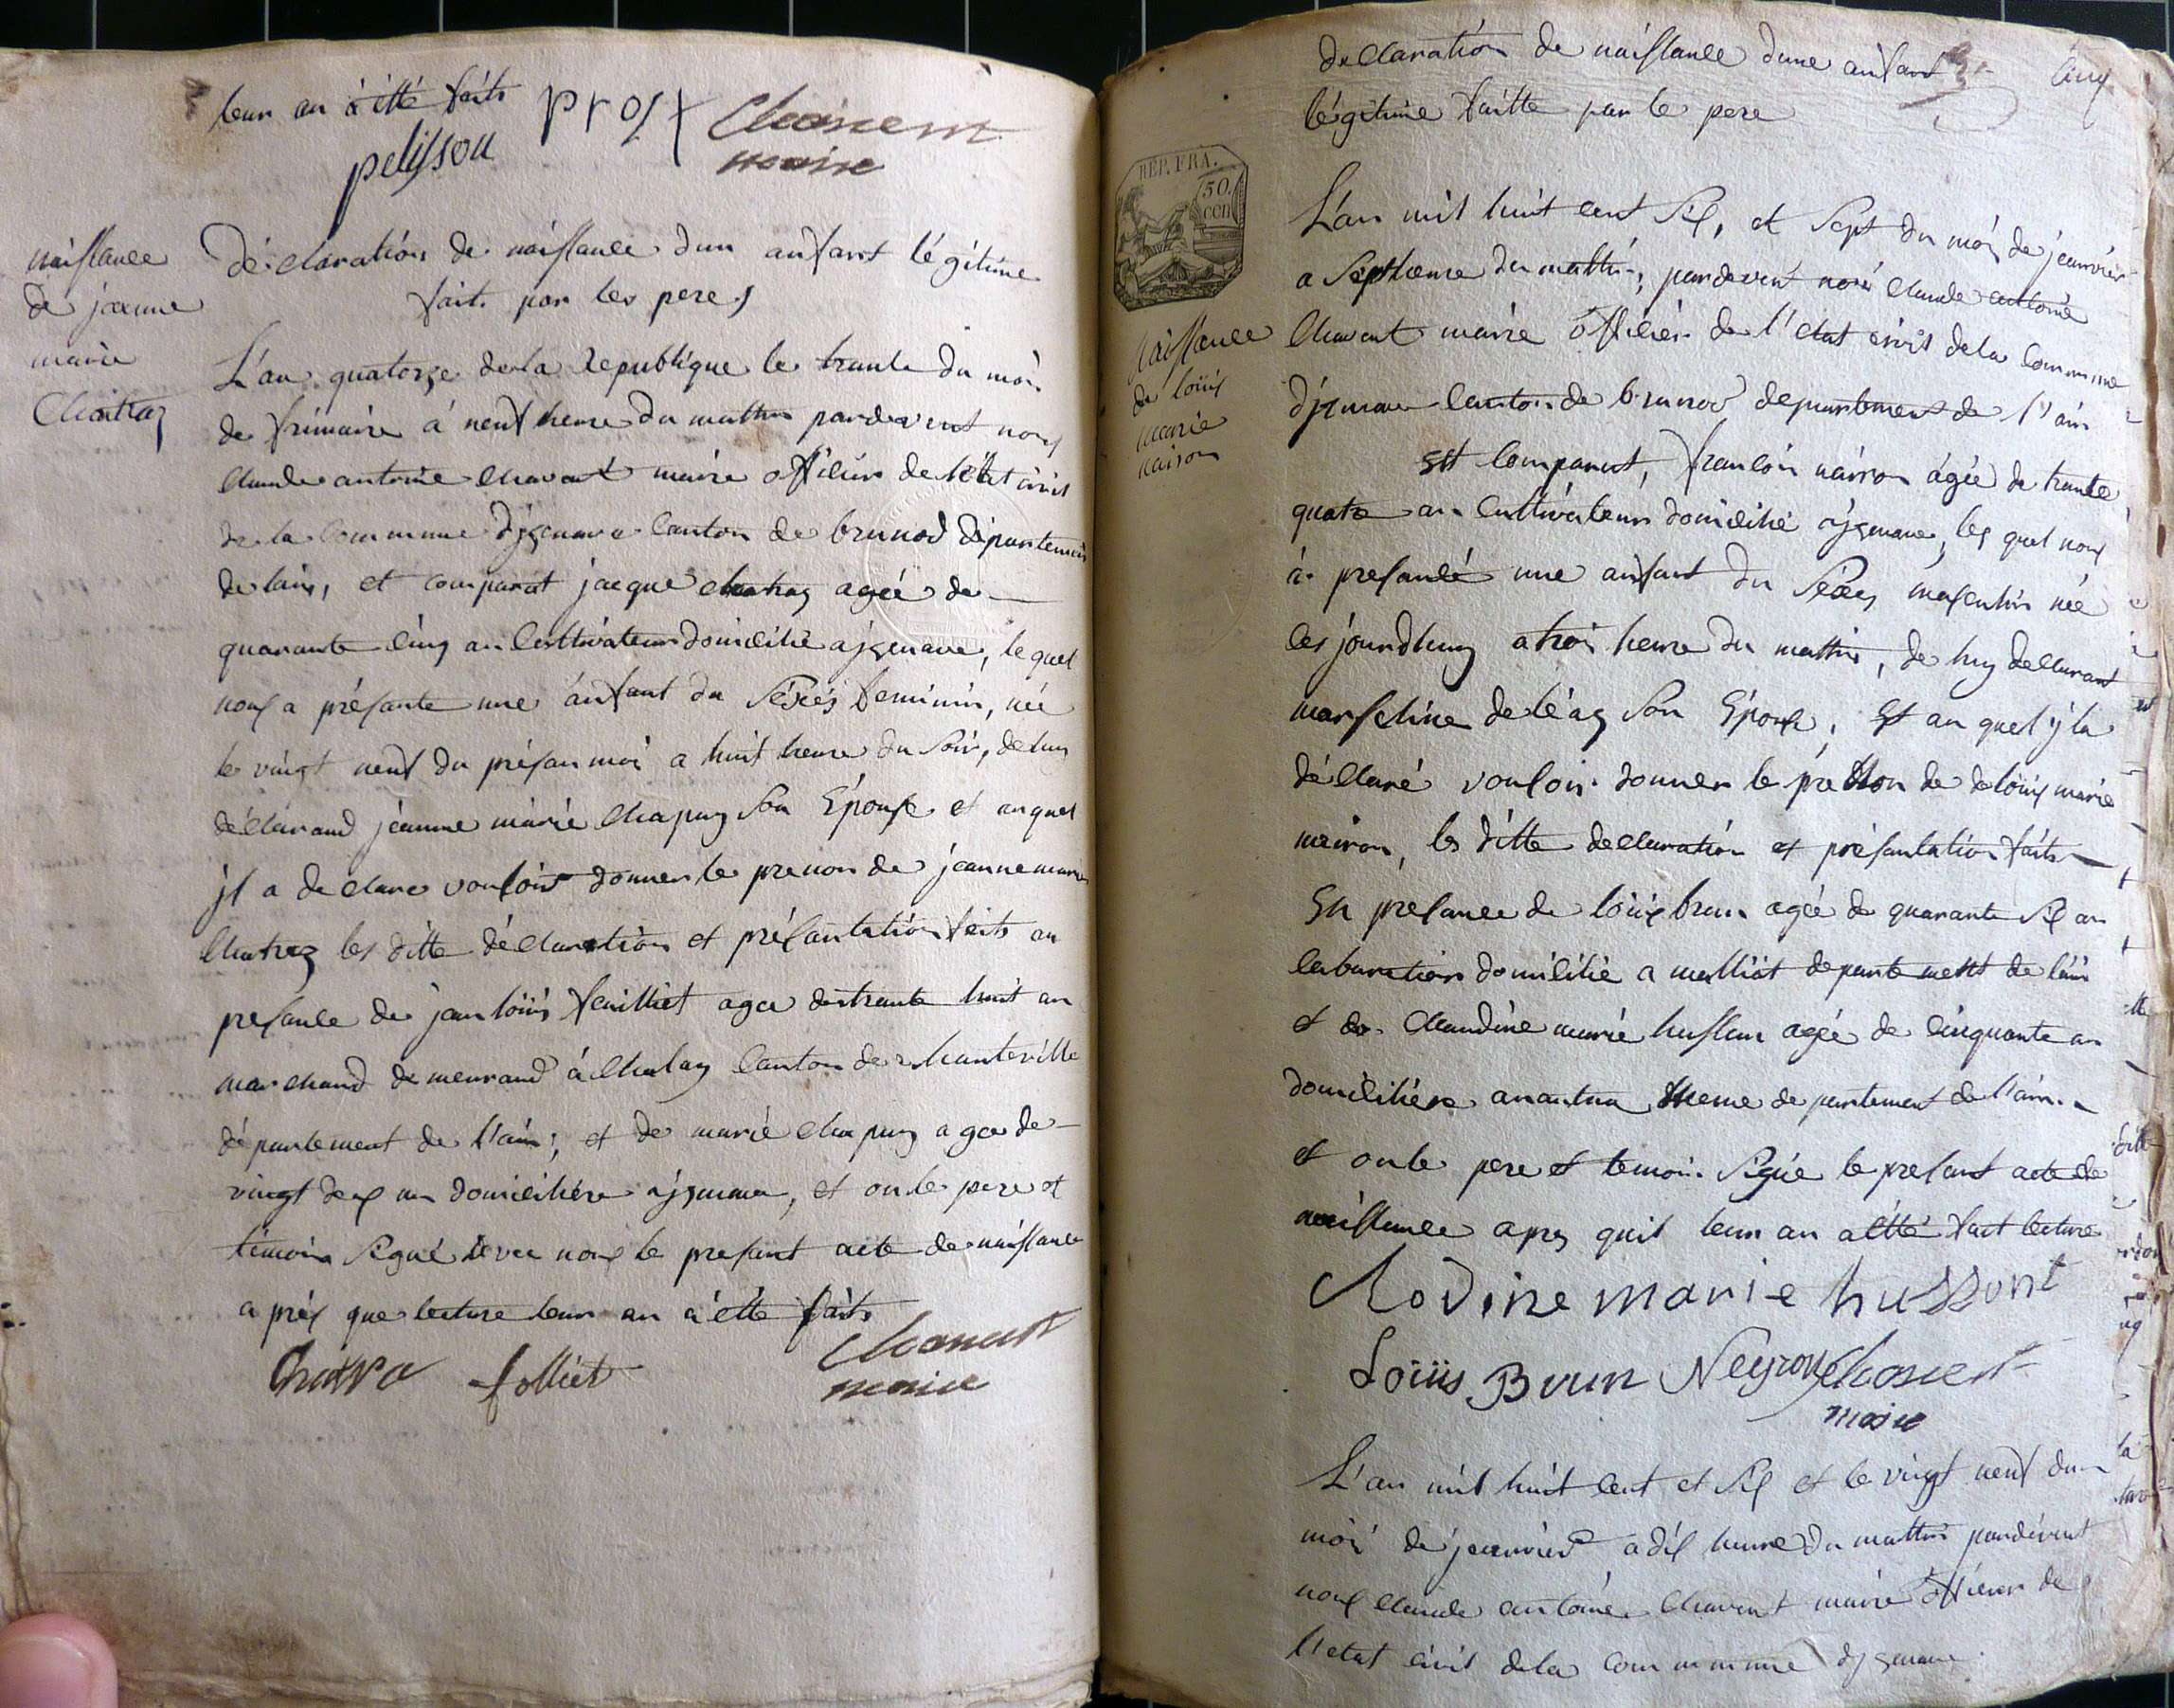 leur an à étté faits
pelisson prost Chavent
maire
naissance
de jeanne
marie
Chatraz
Déclaration de naissance d'un anfant légitime
fait par les peres
L'an quatorze dela Republique le trante du moi
de frimaire à neuf heure du mattin pardevent nous
Claude antoine Chavent maire officier de l'état civil
de la Commune d'jzenave Canton de brenod département
de lain, et comparat jacque Chatraz agée de
quarante cinq an Cultivateur domicilié a jzenave, le quel
nous a présante une anfant du séxés feminin, née
le vingt neuf du présan moi a huit heure du soir, de luy
déclarand jeanne marie Chapuy son Epouse et auquel
jl a declare vouloir donner le prenon de jeanne marie
Chatraz les ditte déclaration et présantation faits an
presance de jan loüis feuilliet agee de trante huit an
marchand demeurand à Chalay Canton de hauteville
département de l'ain; et de marie Chapuy agee de
vingt deux an domicilière a jzenave, et on le pere et
témoin signé avec nous le presant acte de naissance
a prés que lecture leur an à étté faits
Chatra folliet Chavent
maire
declaration de naissance dune anfant
légitime faitte par le pere
cinq
REP. FRA.
50
cen
L'an mil huit cent six, et sept du moi de jeanvier
a septheure du mattin, pardevent nous Claude antoine
Chavent maire officier de l'état civil dela Commune
d'jzenave Canton de brenod département de l'ain
naissance
de loüis
marie
nairon
est Comparut, francoin nairon agée de trante
quatre an Cultivateur domicilié a jzenave, les quel nous
à presanté une anfant du séxes masculin née
les jourdhuy a troi heure du mattin, de luy declarant
marseline deléaz son Epouse, Et au quel jl a
déclaré vouloir donner le prenon de de loüis marie
neiron, les ditte declaration et présantation faits
En presance de loüis brun agée de quarante six an
laburation domicilié a malliat département de lain
et de Claudine marie husson agée de cinquante an
domicilière anantua meme département de l'ain.
et on le pere et temoin signe le presant acte de
naissance apres quil leur an a étté fait lecture
Clodine marie hussont
Loüis Brun Neyron Chavent
maire
L'an mil huit cent et six et le vingt neuf du
moi de jeanvier a dix heure du mattin pardevent
nous Claude antoine Chavent maire officier de
l'état civil dela Commune d'jzenave